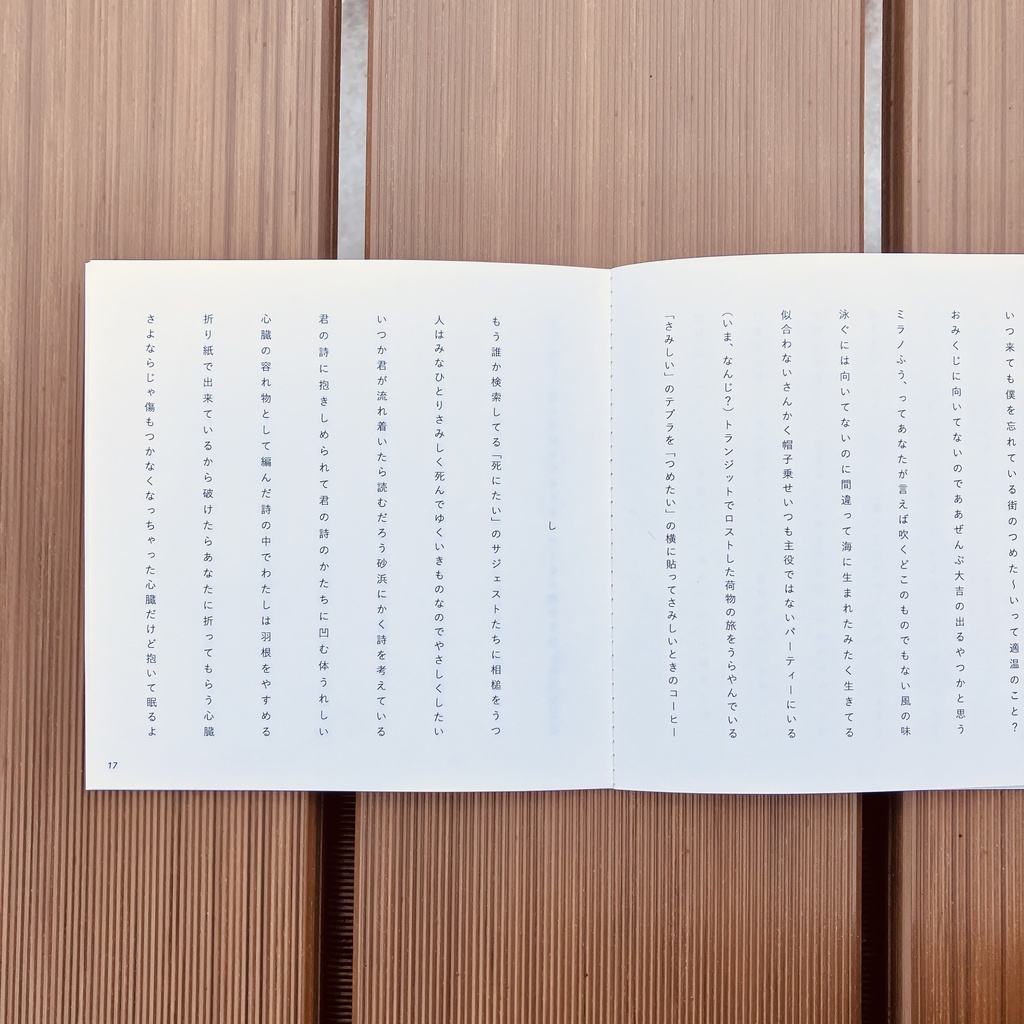 いつ来ても僕を忘れている街のつめた〜いって適温のこと？
おみくじに向いてないのでああぜんぶ大吉の出るやつかと思う
ミラノふう、ってあなたが言えば吹くどこのものでもない風の味
泳ぐには向いてないのに間違って海に生まれたみたく生きてる
似合わないさんかく帽子乗せいつも主役ではないパーティーにいる
（いま、なんじ？）トランジットでロストした荷物の旅をうらやんでいる
「さみしい」のテプラを「つめたい」の横に貼ってさみしいときのコーヒー
し
もう誰か検索してる「死にたい」のサジェストたちに相槌をうつ
人はみなひとりさみしく死んでゆくいきものなのでやさしくしたい
いつか君が流れ着いたら読むだろう砂浜にかく詩を考えている
君の詩に抱きしめられて君の詩のかたちに凹む体うれしい
心臓の容れ物として編んだ詩の中でわたしは羽根をやすめる
折り紙で出来ているから破けたらあなたに折ってもらう心臓
さよならじゃ傷もつかなくなっちゃった心臓だけど抱いて眠るよ
17